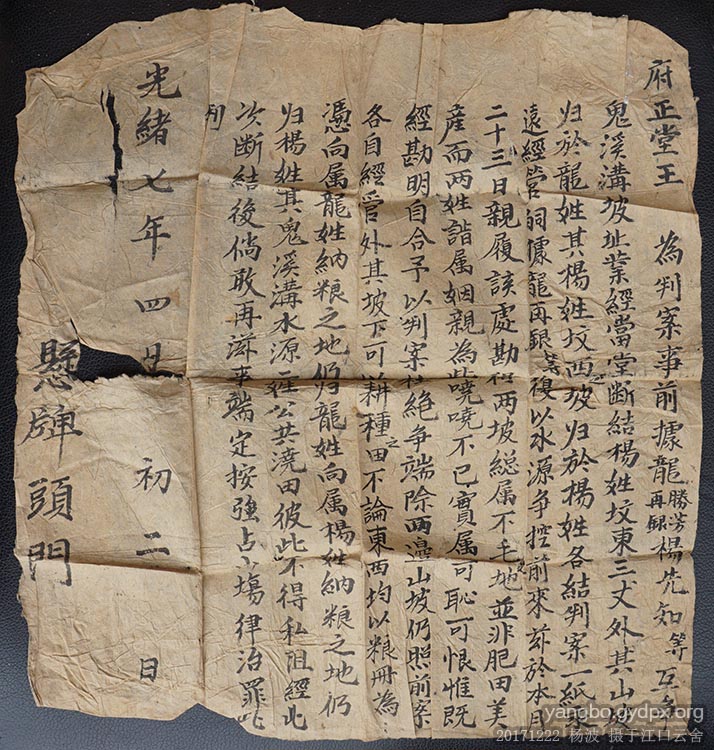 府正堂王 為判案事前據龍勝芳再銀楊先知等互
鬼溪溝坡址業經當堂斷結楊姓坟東三丈外其山
归於龍姓其楊姓坟西之坡归於楊姓各結判案一紙
遠經管嗣據龍再銀等復以水源争控前來兹於本月
二十三日親履該處勘得两坡総属不毛之地並非肥田美
産而两姓諧属姻親為此嘵嘵不已實属可恥可恨惟既
經勘明自合予以判案杜絶争端除两邉山坡仍照前案
各自經管外其坡下可以耕種之田不論東西均以粮冊為
憑向属龍姓納粮之地仍归龍姓向属楊姓納粮之地仍
归楊姓其鬼溪溝水源一公共澆田彼此不得私阻經此
次斷結後倘敢再滋事端定按強占山塲律治罪此
判
光緒七年四月初二日
懸牌頭門
yangbo.gydpx.org
20171222 杨波 摄于江口云舍